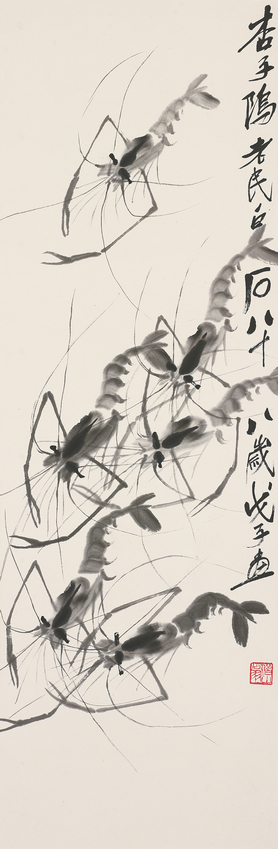 杏子隝老民白石八十八歲戊子畫